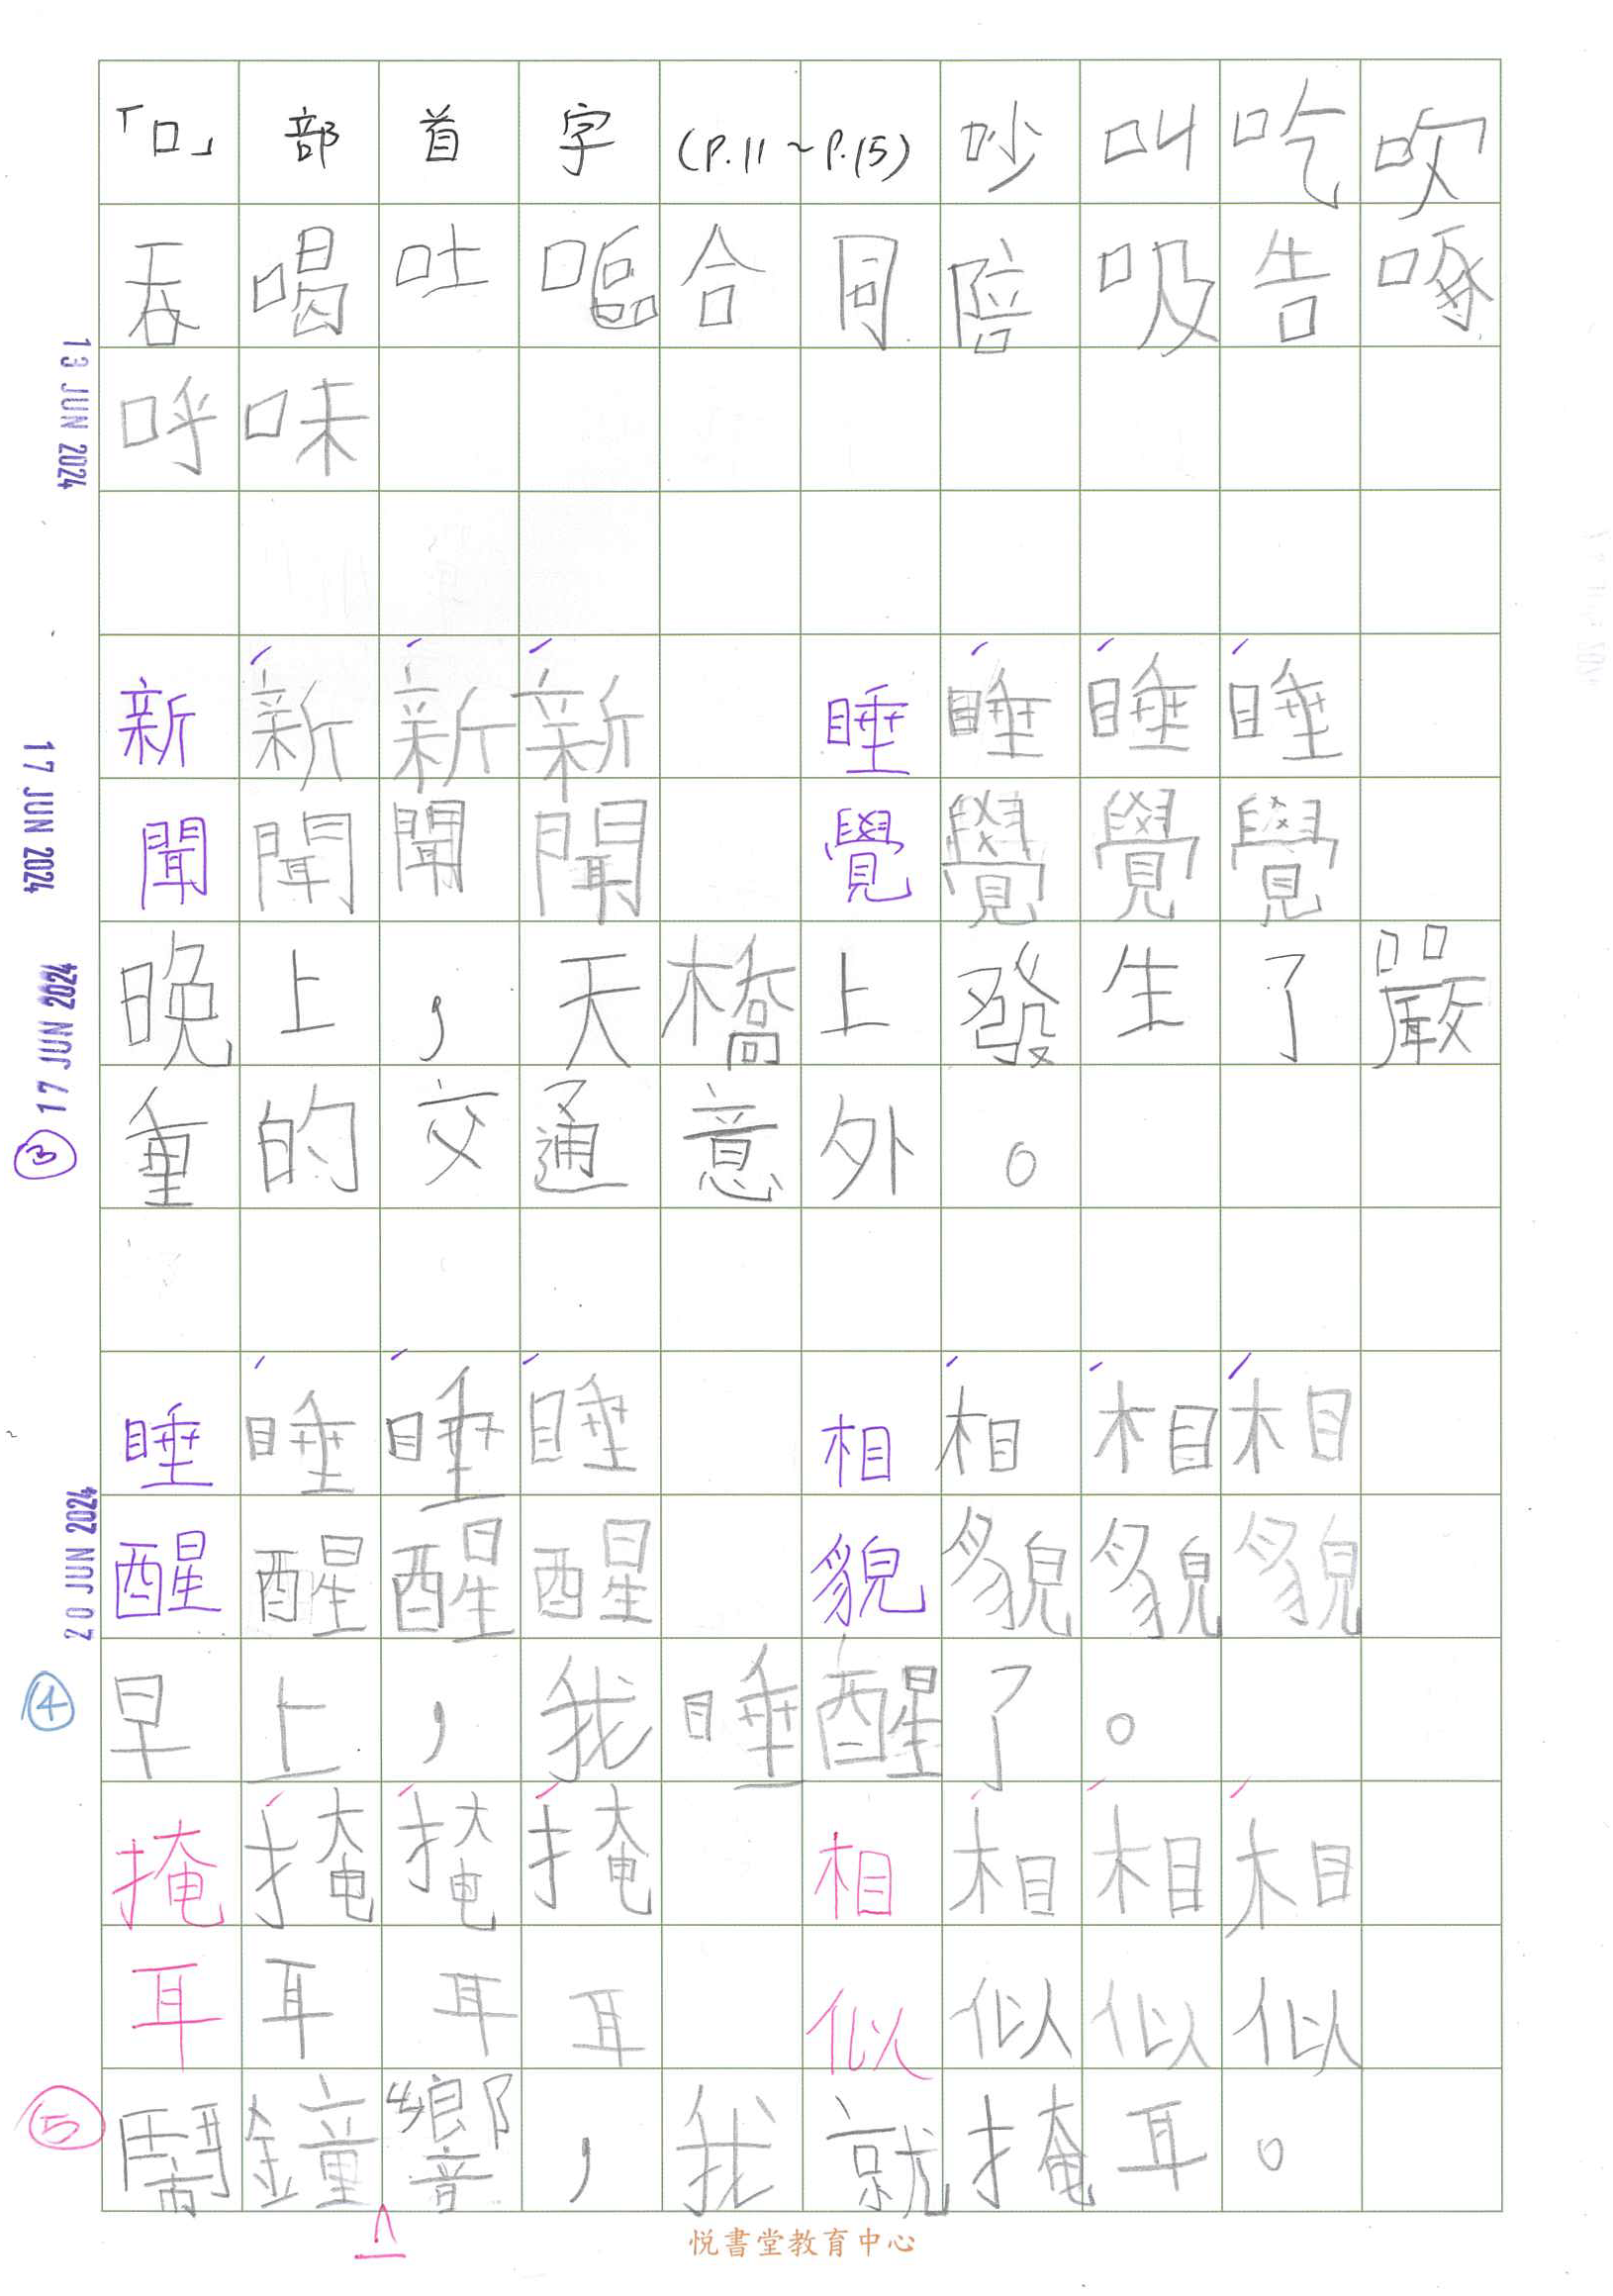 「口」部首字(P.11~P.15)吵叫吃吹
吞喝吐嘔合同陪吸告啄
呼味
13 JUN 2024
新新新新 睡睡睡睡
聞聞聞聞 覺覺覺覺
17 JUN 2024
晚上,天橋上發生了嚴
17 JUN 2024
③重的交通意外。
睡睡睡睡 相相相相
醒醒醒醒 貌貌貌貌
20 JUN 2024
④早上,我睡醒了。
掩掩掩掩 相相相相
耳耳耳耳 似似似似
⑤鬧鐘響,我就掩耳。
悦書堂教育中心